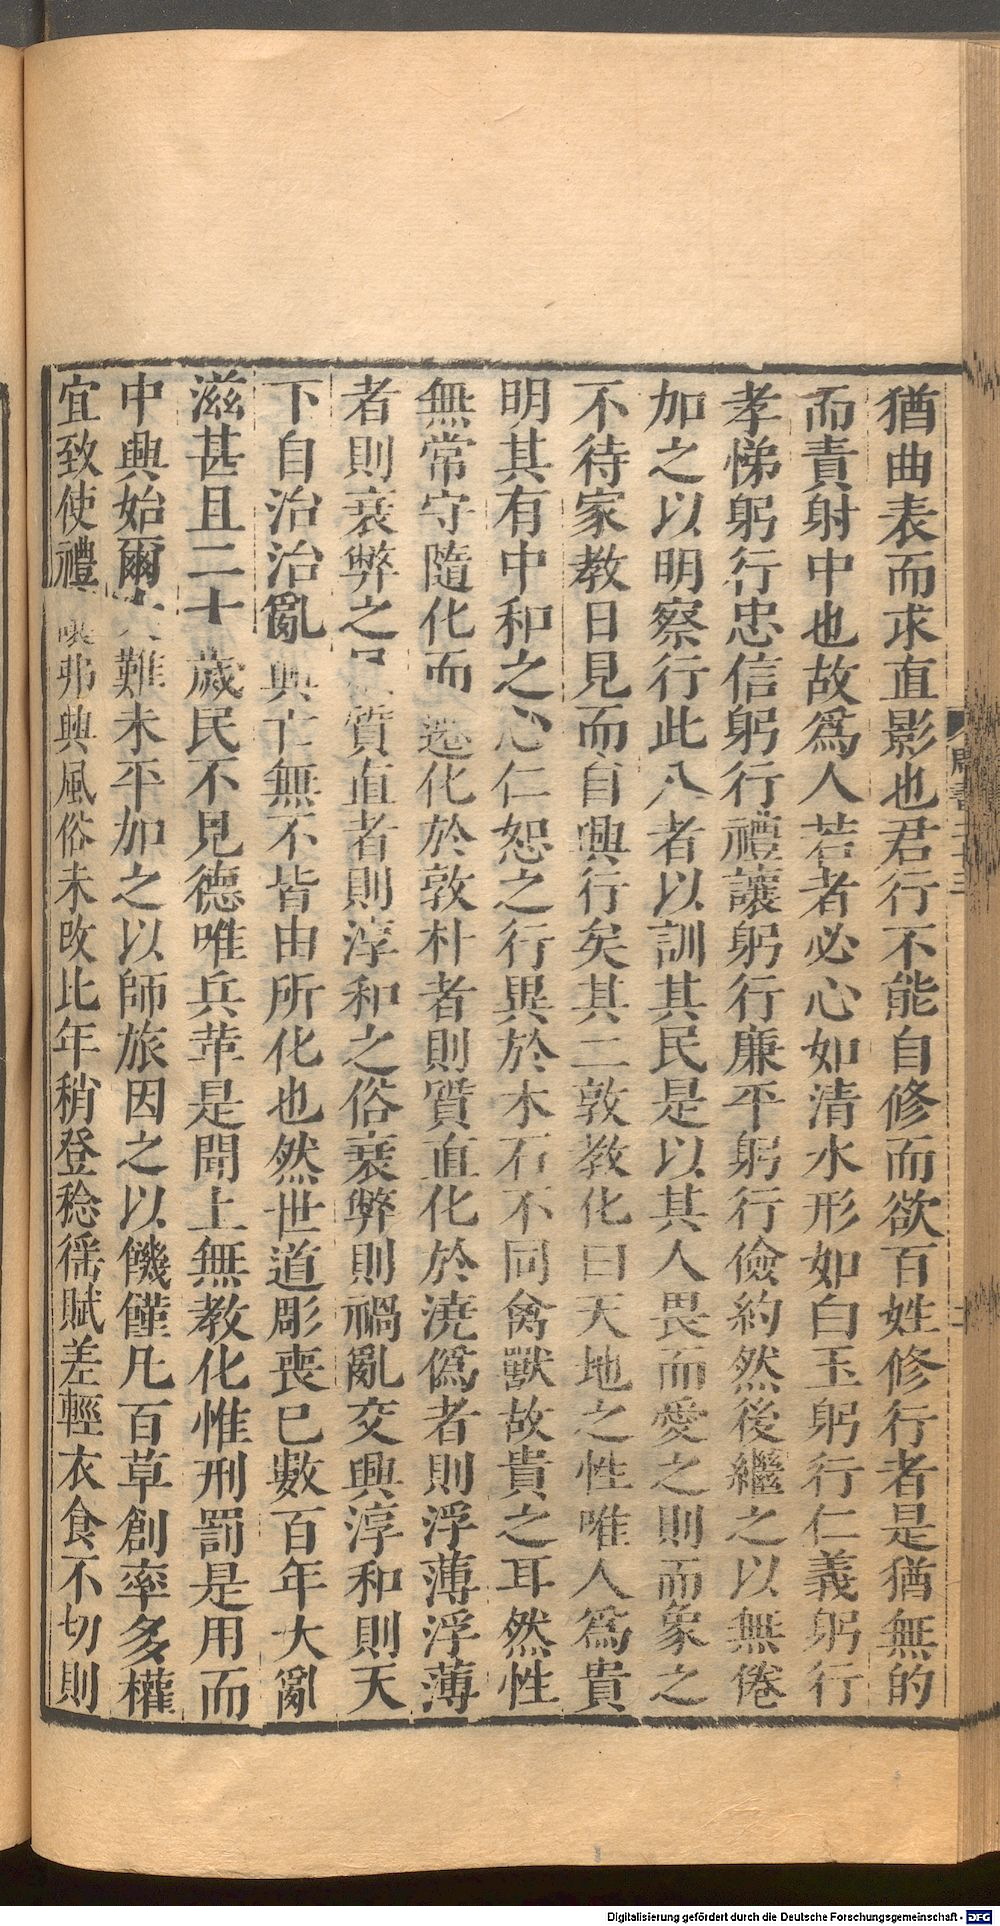 猶曲表而求直影也君行不能自修而欲百姓修行者是猶無的
而責射中也故爲人若者必心如清水形如白玉躬行仁義躬行
孝悌躬行忠信躬行禮讓躬行廉平躬行儉約然後繼之以無倦
加之以明察行此八者以訓其民是以其人畏而愛之則而象之
不待家教日見而自興行矣其二敦教化曰天地之性唯人爲貴
明其有中和之心仁恕之行異於木石不同禽獸故貴之耳然性
無常守隨化而遷化於敦朴者則質直化於澆僞者則浮薄浮薄
者則衰弊之質直者則淳和之俗衰弊則禍亂交興淳和則天
下自治治亂興亡無不皆由所化也然世道彫喪已數百年大亂
滋甚且二十歲民不見德唯兵革是聞上無教化惟刑罰是用而
中興始爾大難未平加之以師旅因之以饑僅凡百草創率多權
宜致使禮讓弗興風俗未改比年稍登稔徭賦差輕衣食不切則
周書二十三
Digitalisierung gefördert durch die Deutsche Forschungsgemeinschaft - DFG